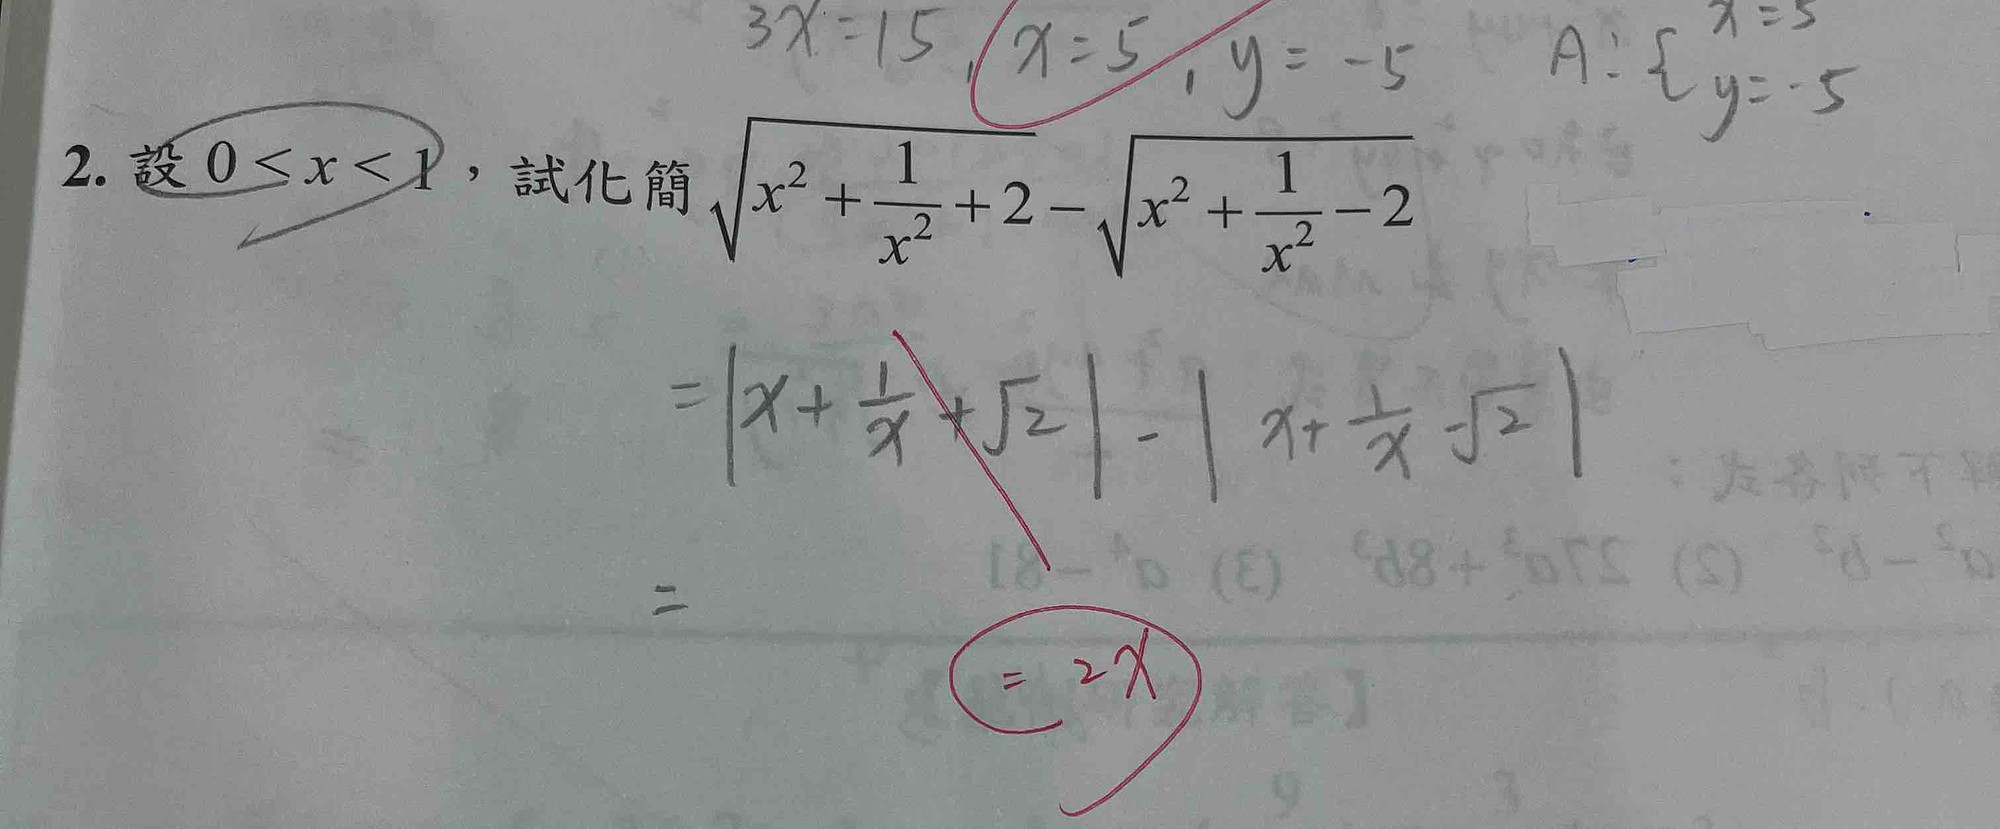 3x=15, x=5, y=-5 A: { x=5 y=-5
2. 設 0 < x < 1，試化簡 √(x² + 1/x² + 2) − √(x² + 1/x² − 2)
= |x + 1/x + √2| - | x + 1/x - √2 |
=
= 2x